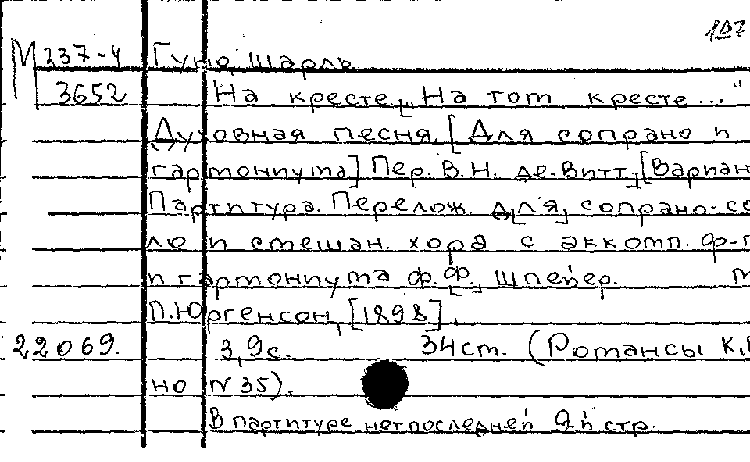 107
М 237-4 Гуно, Шарль
3652 "На кресте, На том кресте..."
Духовная песня. [Для сопрано и
гармониума] Пер. В.Н. де-Витт, [Вариан
Партитура. Перелож. д[ля] сопрано-со
ло и смешан. хора с аккомп. ф-п
и гармониума Ф.Ф. Шпейер. М
П. Юргенсон, [1898].
22069. 3,9с. 34см. (Романсы К.
но N 35).
В партитуре нет последней 9й стр.